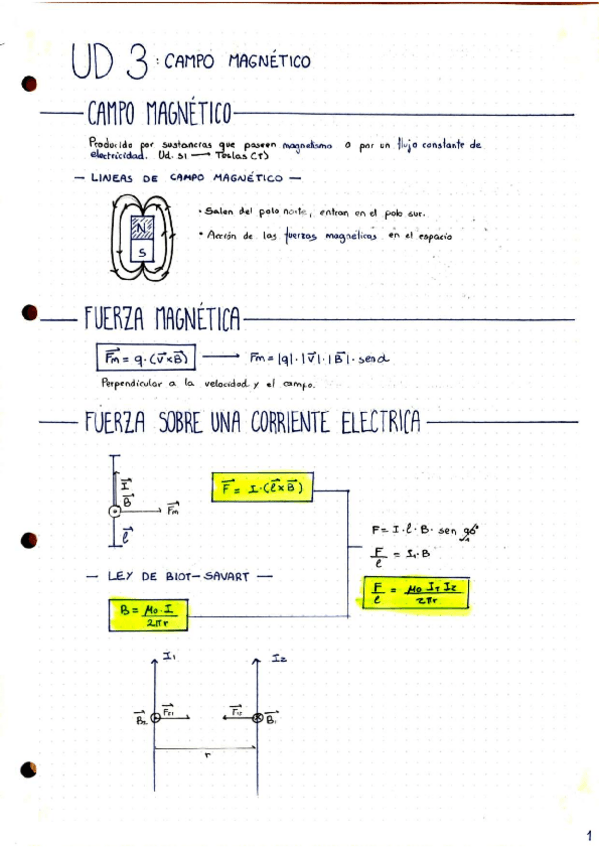 UD 3: CAMPO MAGNÉTICO
CAMPO MAGNÉTICO
Producido por sustancias que poseen magnetismo o por un flujo constante de
electricidad. Ud. SI → Teslas (T)
- LINEAS DE CAMPO MAGNÉTICO -
N
S
• Salen del polo norte, entran en el polo sur.
• Acción de las fuerzas magnéticas en el espacio
FUERZA MAGNÉTICA
F⃗m = q · (v⃗ × B⃗) → Fm = |q| · |v⃗| · |B⃗| · senα
Perpendicular a la velocidad y el campo.
FUERZA SOBRE UNA CORRIENTE ELECTRICA
I⃗
B⃗
F⃗m
l⃗
F⃗ = I · (l⃗ × B⃗)
F = I · l · B · sen 90°
1
F/l = I₁ · B
F/l = μ₀ I₁ I₂ / 2πr
- LEY DE BIOT-SAVART -
B = μ₀ · I / 2πr
I₁
I₂
B⃗₂
F⃗₂₁
F⃗₁₂
B⃗₁
r
1